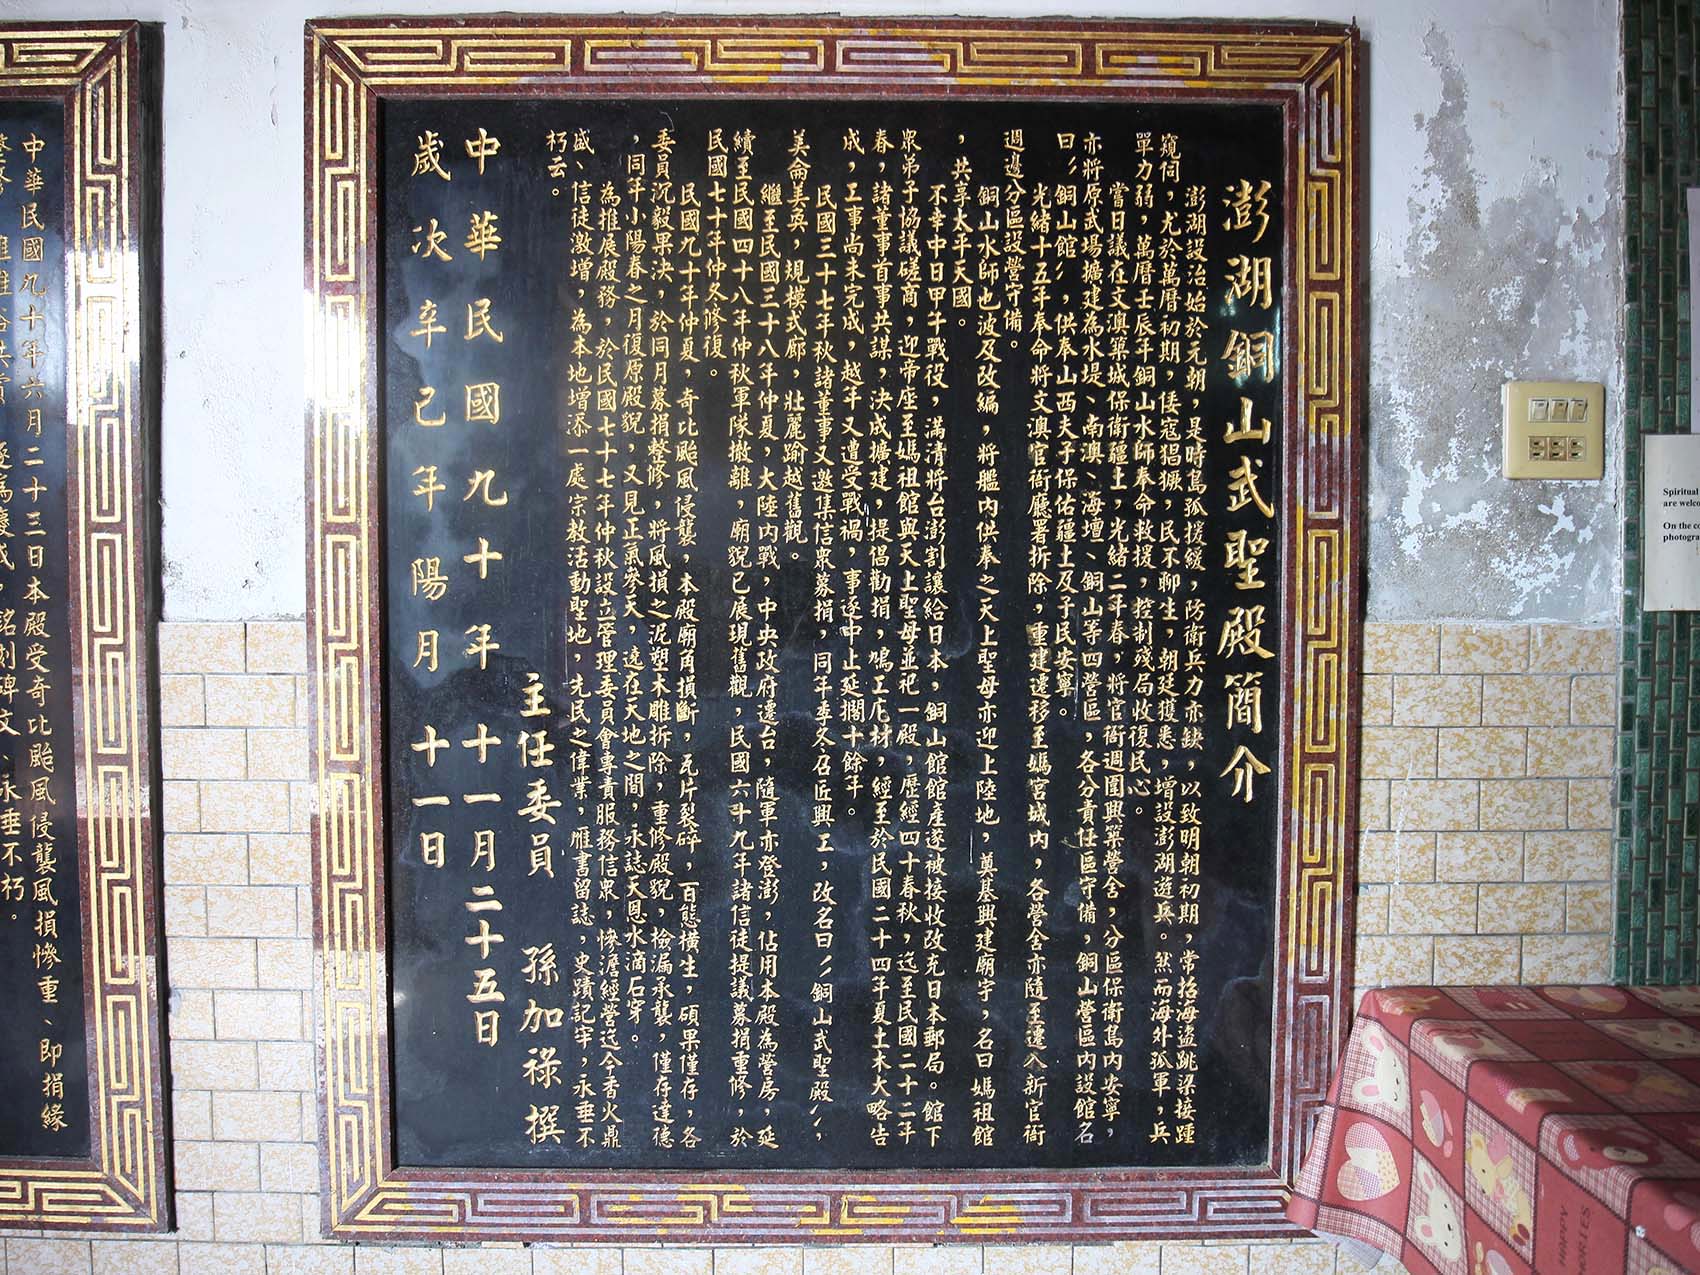 澎湖銅山武聖殿簡介
澎湖設治始於元朝，是時島孤援緩，防衛兵力亦缺，以致明朝初期，常招海盜跳梁接踵
窺伺，尤於萬曆初期，倭寇猖獗，民不聊生，朝廷獲悉，增設澎湖遊兵。然而海外孤軍，兵
單力弱，萬曆壬辰年銅山水師奉命救援，控制殘局收復民心。
當日議在文澳築城保衛疆土，光緒二年春，將官衙週圍興築營舍，分區保衛島內安寧，
亦將原武場擴建為水堤、南澳、海壇、銅山等四營區，各分責任區守備，銅山營區內設館名
曰〞銅山館〞，供奉山西夫子保佑疆土及子民安寧。
光緒十五年奉命將文澳官衙廳署拆除，重建遷移至媽宮城內，各營舍亦隨至遷入新官衙
週邊分區設營守備。
銅山水師也波及改編，將艦內供奉之天上聖母亦迎上陸地，奠基興建廟宇，名曰媽祖館
，共享太平天國。
不幸中日甲午戰役，滿清將台澎割讓給日本，銅山館館產遂被接收改充日本郵局。館下
眾弟子協議磋商，迎帝座至媽祖館與天上聖母並祀一殿，歷經四十春秋，迄至民國二十二年
春，諸董事首事共謀，決成擴建，提倡勸捐，鳩工庀材，經至於民國二十四年夏土木大略告
成，工事尚未完成，越年又遭受戰禍，事遂中止延擱十餘年。
民國三十七年秋諸董事又邀集信眾募捐，同年季冬召匠興工，改名曰〞銅山武聖殿〞，
美侖美奐，規模式廊，壯麗踰越舊觀。
繼至民國三十八年仲夏，大陸內戰，中央政府遷台，隨軍亦登澎，佔用本殿為營房，延
續至民國四十八年仲秋軍隊撤離，廟貌已展現舊觀，民國六十九年諸信徒提議募捐重修，於
民國七十年仲冬修復。
民國九十年仲夏，奇比颱風侵襲，本殿廟角損斷，瓦片裂碎，百態橫生，碩果僅存，各
委員沉毅果決，於同月募捐整修，將風損之泥塑木雕拆除，重修殿貌，檢漏承襲，僅存達德
，同年小陽春之月復原殿貌，又見正氣參天，遠在天地之間，永誌天恩水滴石穿。
為推展殿務，於民國七十七年仲秋設立管理委員會專責服務信眾，慘澹經營迄今香火鼎
盛、信徒激增，為本地增添一處宗教活動聖地，先民之偉業，雁書留誌，史蹟記牢，永垂不
朽云。
主任委員　孫加祿撰
中華民國九十年十一月二十五日
歲次辛己年陽月十一日
中華民國九十年六月二十三日本殿受奇比颱風侵襲風損慘重、即捐緣
銘刻碑文、永垂不朽。
Spiritual
are welco
On the co
photogra
HAPPY